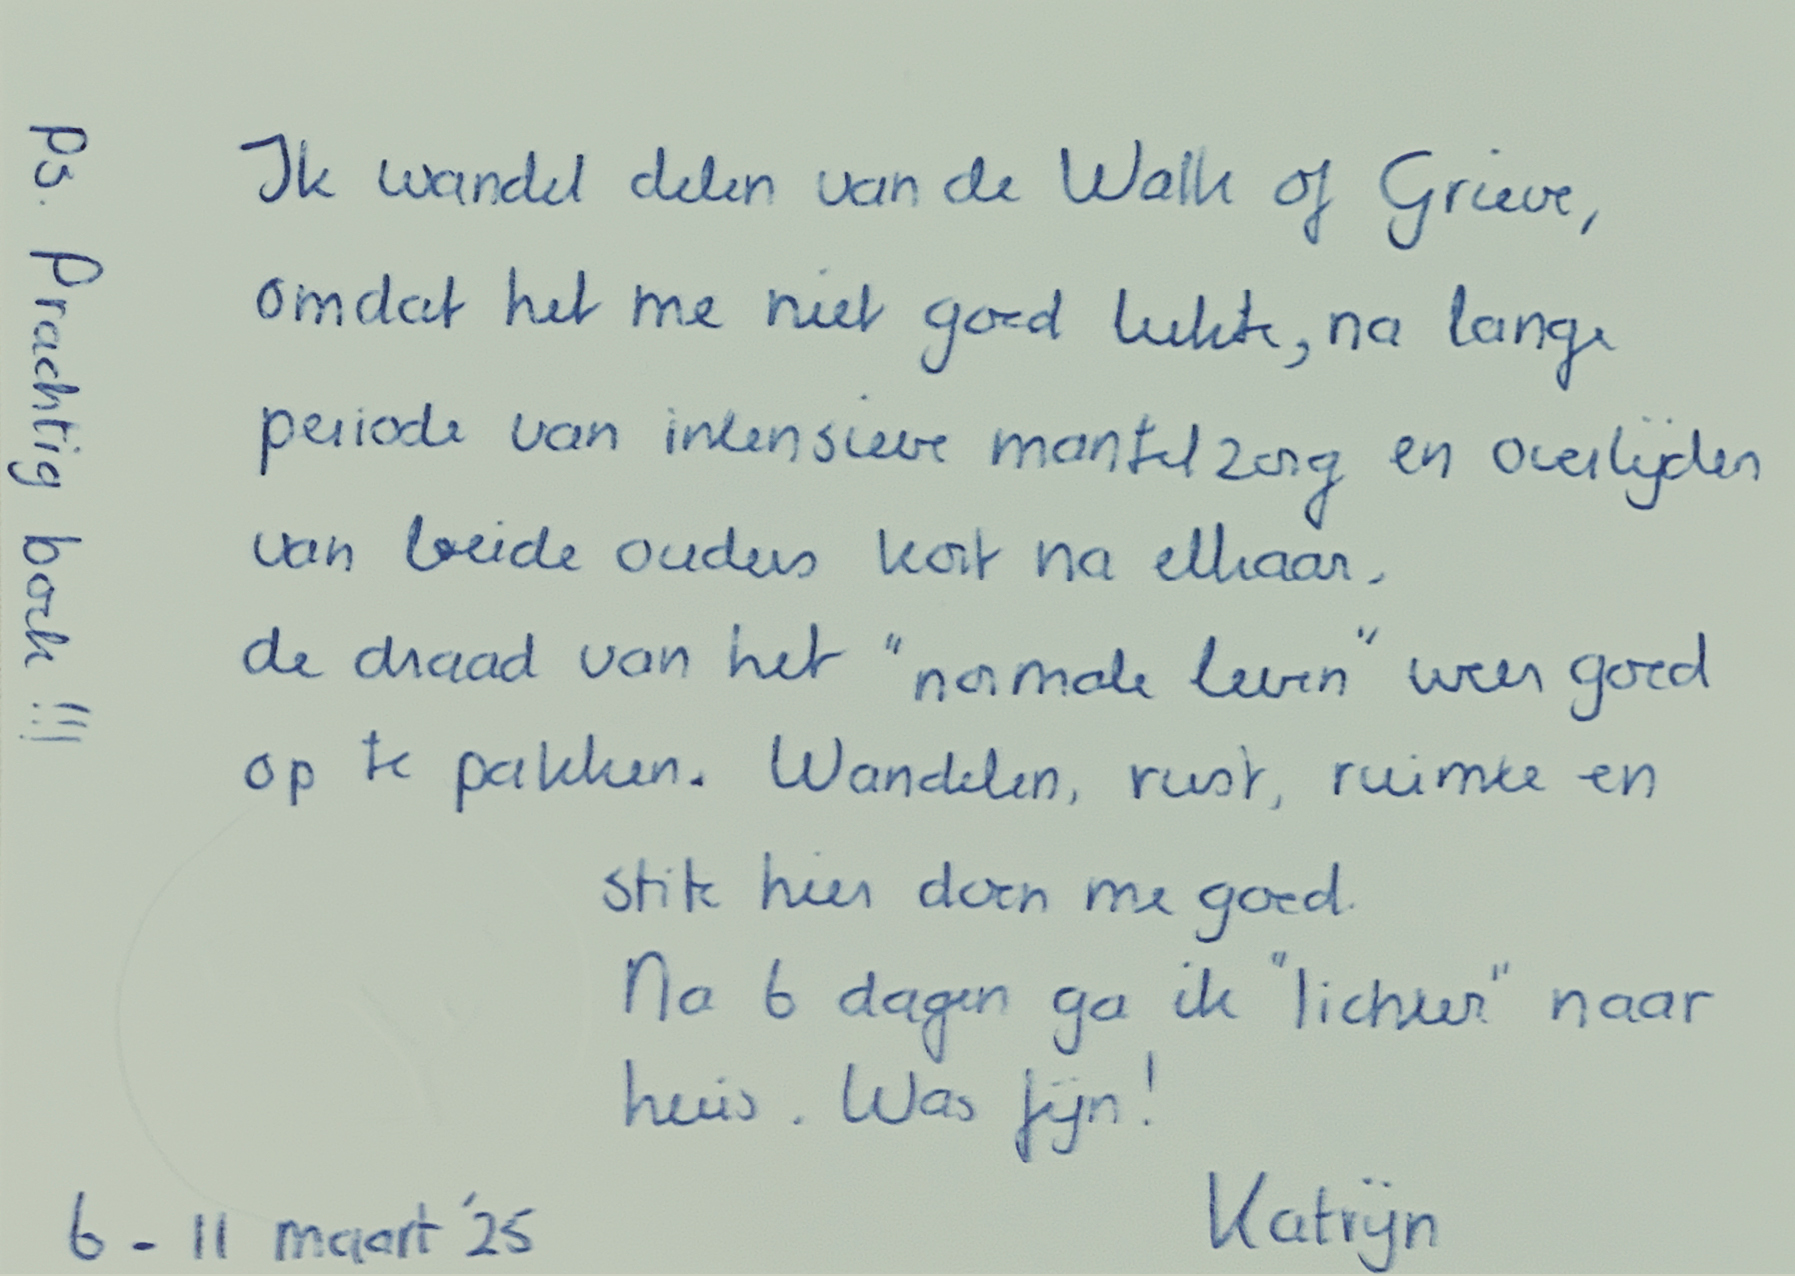 Ik wandel delen van de Walk of Grieve,
omdat het me niet goed lukte, na lange
periode van intensieve mantelzorg en overlijden
van beide ouders kort na elkaar.
de draad van het "normale leven" weer goed
op te pakken. Wandelen, rust, ruimte en
stilte hier doen me goed.
Na 6 dagen ga ik "lichter" naar
huis. Was fijn!
Katrijn
6 - 11 maart '25
ps. Prachtig boek !!!